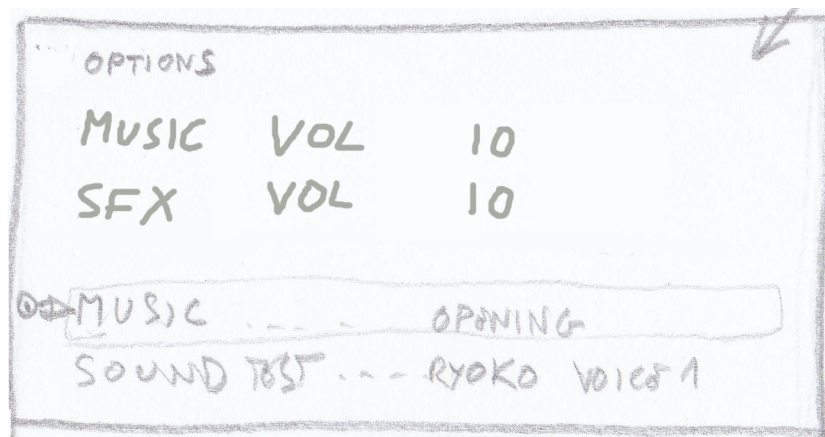 OPTIONS
MUSIC VOL 10
SFX VOL 10
MUSIC ..... OPENING
SOUND TEST ... RYOKO VOICE 1